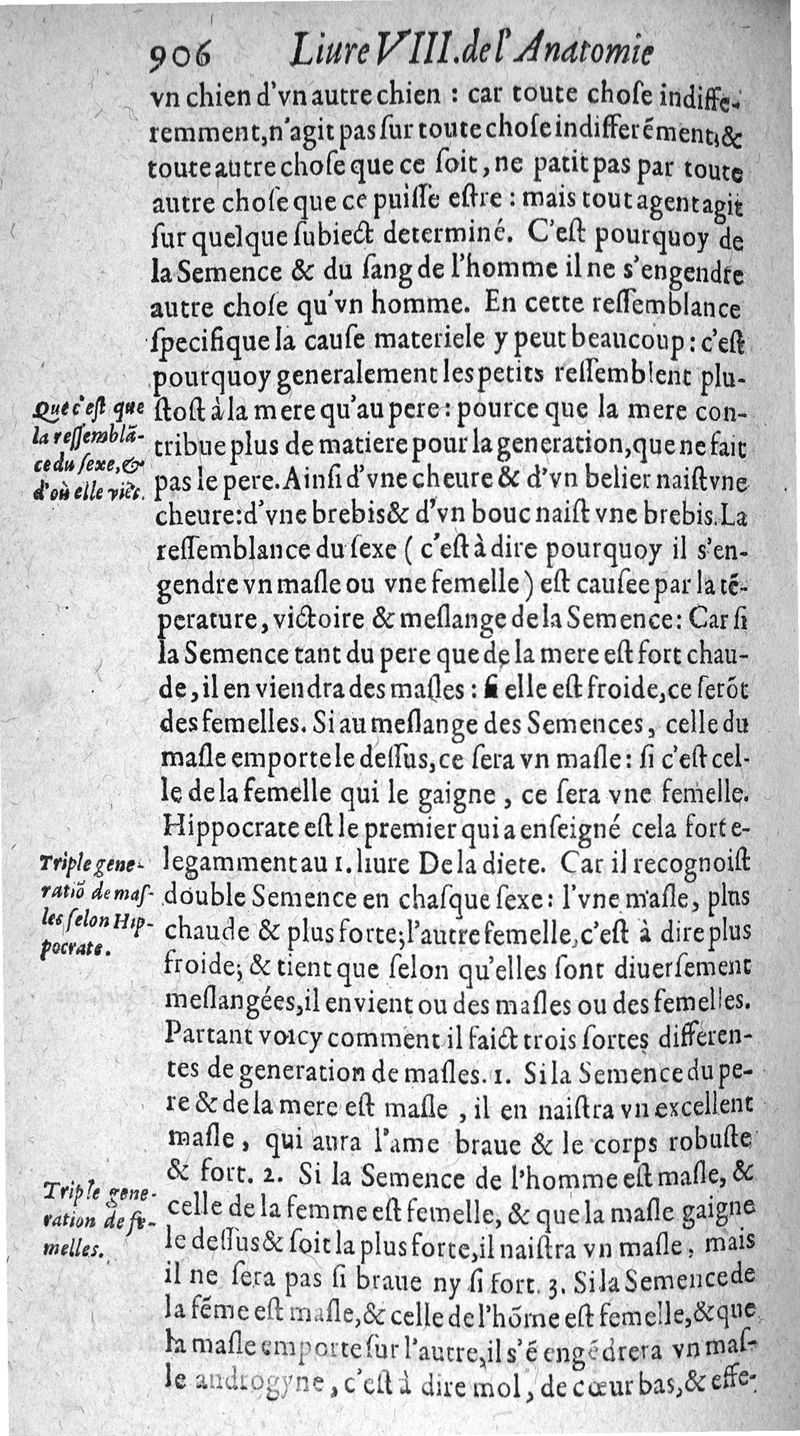 906 Liure VIII. de l'Anatomie
vn chien d'vn autre chien : car toute choſe indiffe-
remment, n'agit pas ſur toute choſe indifferẽment, &
toute autre choſe que ce ſoit, ne patit pas par toute
autre choſe que ce puiſſe eſtre : mais tout agent agit
ſur quelque ſubiect determiné. C'eſt pourquoy de
la Semence & du ſang de l'homme il ne s'engendre
autre choſe qu'vn homme. En cette reſſemblance
ſpecifique la cauſe materiele y peut beaucoup : c'eſt
pourquoy generalement les petits reſſemblent plu-
ſtoſt à la mere qu'au pere : pource que la mere con-
tribue plus de matiere pour la generation, que ne fait
pas le pere. Ainſi d'vne cheure & d'vn belier naiſt vne
cheure: d'vne brebis & d'vn bouc naiſt vne brebis. La
reſſemblance du ſexe ( c'eſt à dire pourquoy il s'en-
gendre vn maſle ou vne femelle ) eſt cauſee par la tẽ-
perature, victoire & meſlange de la Semence: Car ſi
la Semence tant du pere que de la mere eſt fort chau-
de, il en viendra des maſles : ſi elle eſt froide, ce ſerõt
des femelles. Si au meſlange des Semences, celle du
maſle emporte le deſſus, ce ſera vn maſle: ſi c'eſt cel-
le de la femelle qui le gaigne , ce ſera vne femelle.
Hippocrate eſt le premier qui a enſeigné cela fort e-
legamment au 1. liure De la diete. Car il recognoiſt
double Semence en chaſque ſexe: l'vne maſle, plus
chaude & plus forte; l'autre femelle, c'eſt à dire plus
froide; & tient que ſelon qu'elles ſont diuerſement
meſlangées, il en vient ou des maſles ou des femelles.
Partant voicy comment il faict trois ſortes differen-
tes de generation de maſles. 1. Si la Semence du pe-
re & de la mere eſt maſle , il en naiſtra vn excellent
maſle, qui aura l'ame braue & le corps robuſte
& fort. 2. Si la Semence de l'homme eſt maſle, &
celle de la femme eſt femelle, & que la maſle gaigne
le deſſus & ſoit la plus forte, il naiſtra vn maſle, mais
il ne ſera pas ſi braue ny ſi fort. 3. Si la Semence de
la fẽme eſt maſle, & celle de l'hõme eſt femelle, & que
la maſle emporte ſur l'autre, il s'ẽ engẽdrera vn maſ-
le androgyne, c'eſt à dire mol, de cœur bas, & effe-
Que c'eſt que
la reſſemblã-
ce du ſexe, &
d'où elle viẽt.
Triple gene-
ratiõ de maſ-
les ſelon Hip-
pocrate.
Triple gene-
ration de fe-
melles.